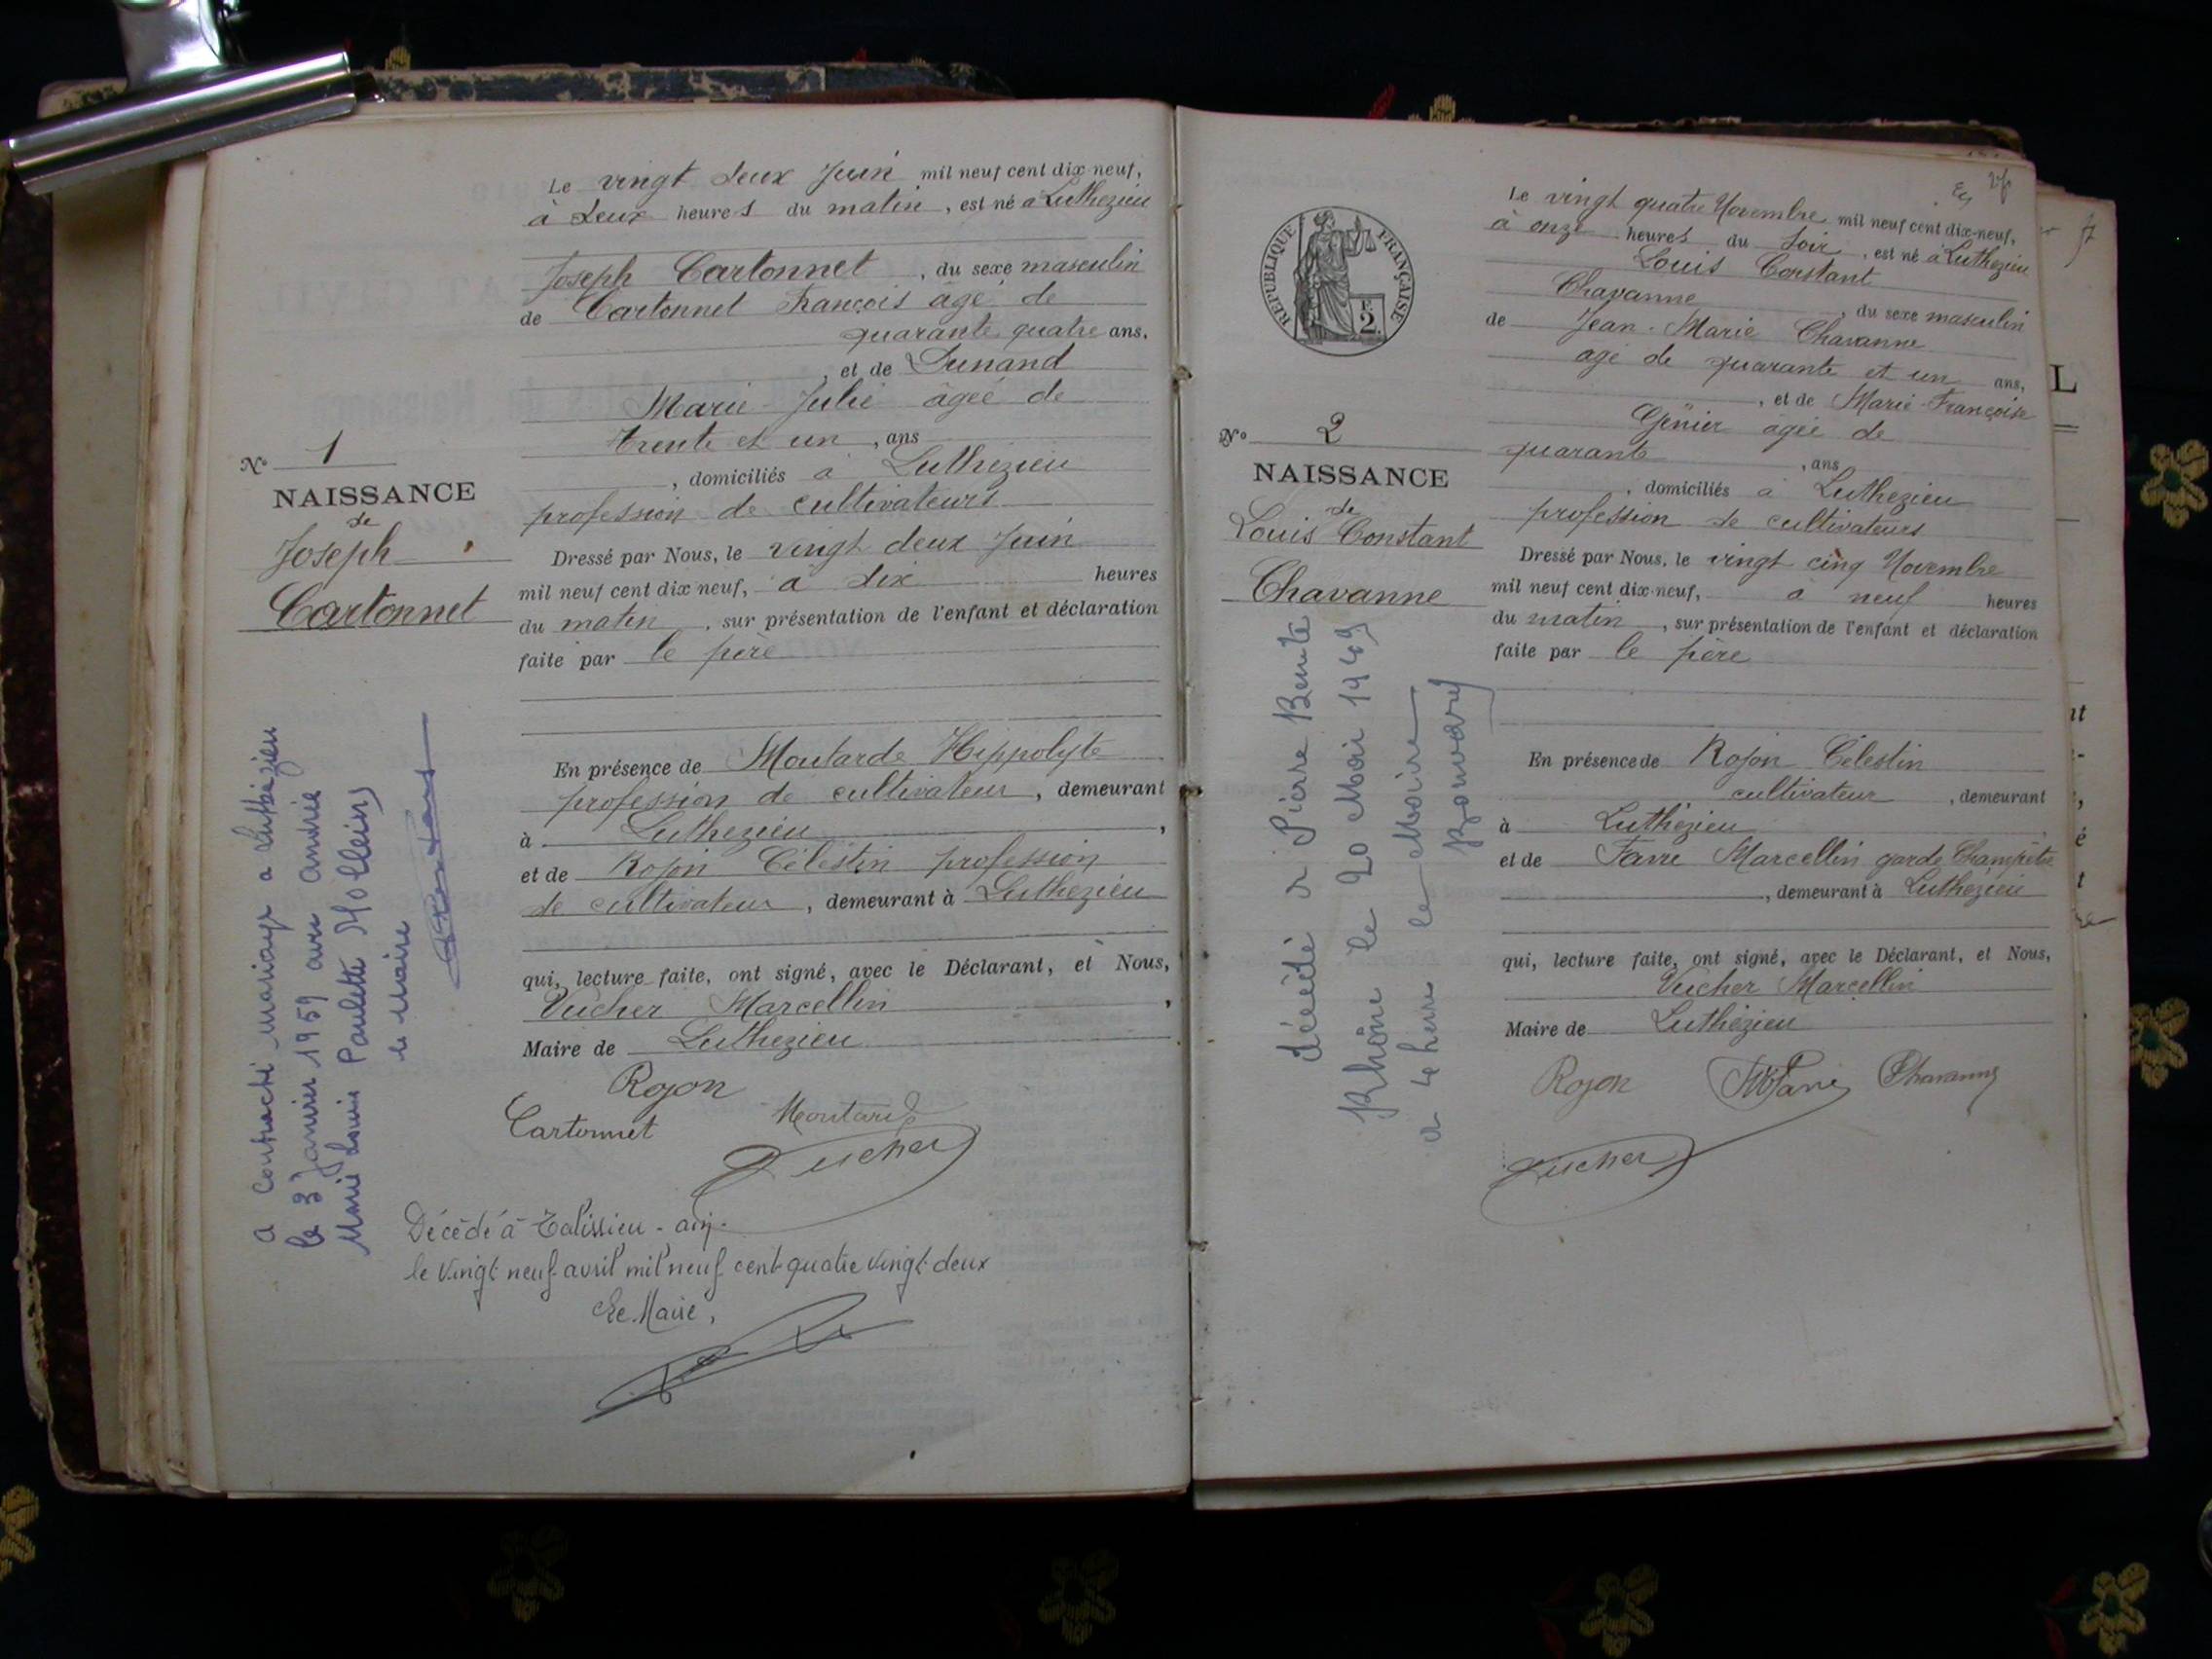 Le vingt deux Juin mil neuf cent dix-neuf,
à deux heures du matin, est né à Luthezieu
Joseph Cartonnet, du sexe masculin
de Cartonnet François âgé de
quarante quatre ans,
, et de Dunand
Marie-Julie âgée de
trente et un, ans
, domiciliés à Luthezieu
profession de cultivateurs
Dressé par Nous, le vingt deux Juin
mil neuf cent dix-neuf, à dix heures
du matin, sur présentation de l'enfant et déclaration
faite par le père
En présence de Moutarde Hippolyte
profession de cultivateur, demeurant
à Luthezieu,
et de Rojon Célestin profession
de cultivateur, demeurant à Luthezieu
qui, lecture faite, ont signé, avec le Déclarant, et Nous,
Vucher Marcellin,
Maire de Luthezieu
Rojon
Cartonnet Moutarde
Vucher
Décédé à Talissieu - ain -
le vingt neuf avril mil neuf cent quatre vingt deux
Le Maire,
N° 1
NAISSANCE
de
Joseph
Cartonnet
a contracté mariage a Luthézieu
le 3 Janvier 1959 avec Andrée
Marie Louise Paulette
le Maire
RÉPUBLIQUE FRANÇAISE
2
N° 2
NAISSANCE
de
Louis Constant
Chavanne
décédé à Pierre Benite
Rhône le 20 Mai 1949
a 4 heure le Maire
Le vingt quatre Novembre mil neuf cent dix-neuf,
à onze heures du soir, est né à Luthezieu
Louis Constant
Chavanne, du sexe masculin
de Jean-Marie Chavanne
agé de quarante et un ans,
, et de Marie-Françoise
Génier âgée de
quarante, ans
, domiciliés à Luthezieu
profession de cultivateurs
Dressé par Nous, le vingt cinq Novembre
mil neuf cent dix-neuf, à neuf heures
du matin, sur présentation de l'enfant et déclaration
faite par le père
En présence de Rojon Célestin
cultivateur, demeurant
à Luthézieu
et de Favre Marcellin garde Champêtre
, demeurant à Luthézieu
qui, lecture faite, ont signé, avec le Déclarant, et Nous,
Vucher Marcellin
Maire de Luthézieu
Rojon MFavre Chavanne
Vucher